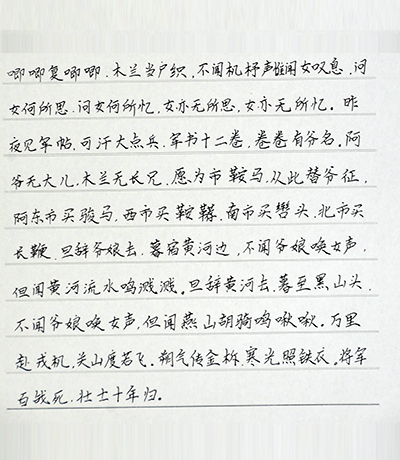 唧唧复唧唧.木兰当户织,不闻机杼声惟闻女叹息.问
女何所思.问女何所忆,女亦无所思,女亦无所忆。昨
夜见军帖.可汗大点兵.军书十二卷,卷卷有爷名。阿
爷无大儿,木兰无长兄.愿为市鞍马.从此替爷征,
阿东市买骏马,西市买鞍鞯.南市买辔头.北市买
长鞭.旦辞爷娘去.暮宿黄河边,不闻爷娘唤女声.
但闻黄河流水鸣溅溅。旦辞黄河去.暮至黑山头,
不闻爷娘唤女声,但闻燕山胡骑鸣啾啾。万里
赴戎机,关山度若飞。朔气传金柝.寒光照铁衣。将军
百战死.壮士十年归。